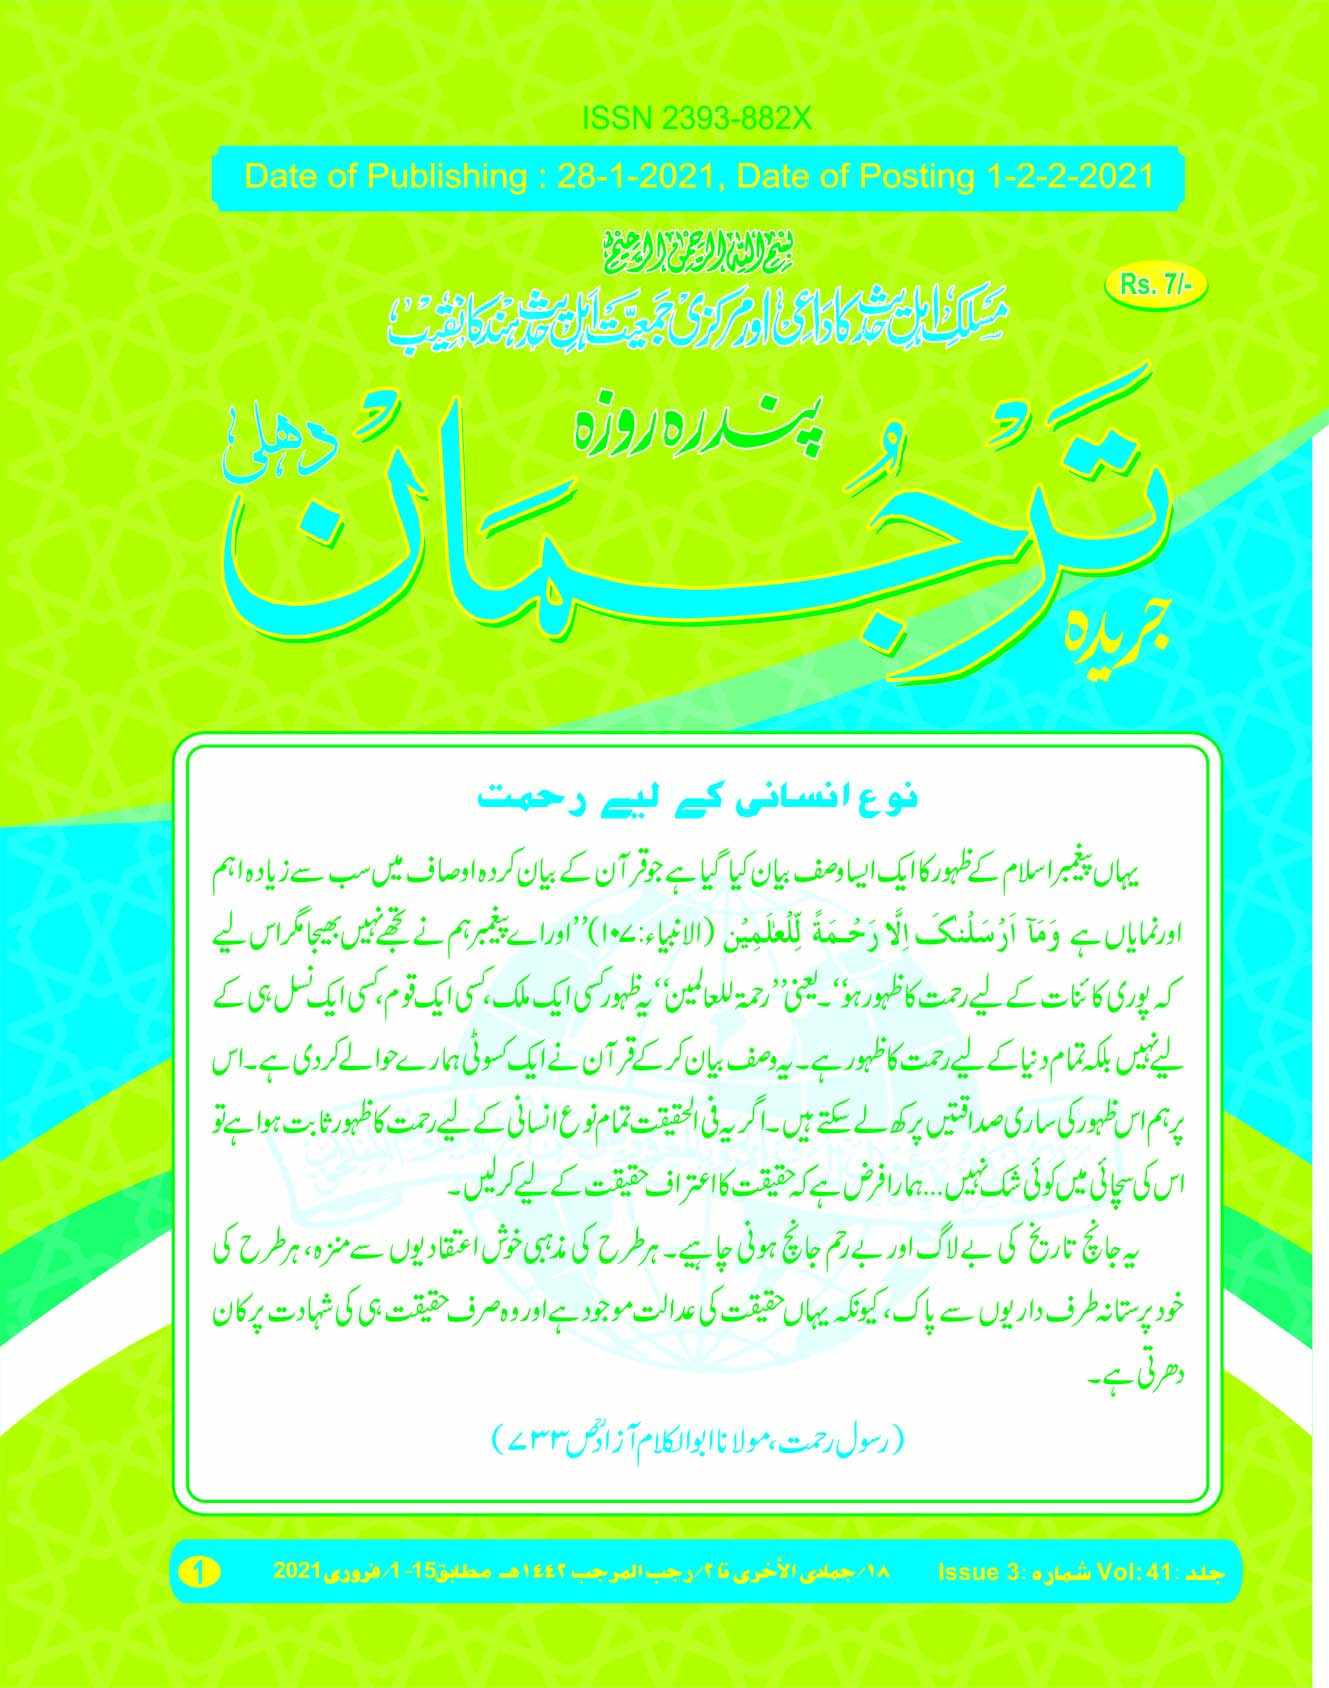 ISSN 2393-882X
Date of Publishing : 28-1-2021, Date of Posting 1-2-2-2021
بسم اللہ الرحمن الرحیم
Rs. 7/-
مسلک اہل حدیث کا داعی اور مرکزی جمعیت اہل حدیث ہند کا نقیب
پندرہ روزہ
جریدہ
تَرجُمَان
دھلی
نوع انسانی کے لیے رحمت
یہاں پیغمبر اسلام کے ظہور کا ایک ایسا وصف بیان کیا گیا ہے جو قرآن کے بیان کردہ اوصاف میں سب سے زیادہ اہم
اور نمایاں ہے وَمَآ اَرْسَلْنٰکَ اِلَّا رَحْمَۃً لِّلْعٰلَمِیْن (الانبیاء:۱۰۷) ’’اور اے پیغمبر ہم نے تجھے نہیں بھیجا مگر اس لیے
کہ پوری کائنات کے لیے رحمت کا ظہور ہو‘‘۔ یعنی ’’رحمۃ للعالمین‘‘ یہ ظہور کسی ایک ملک، کسی ایک قوم، کسی ایک نسل ہی کے
لیے نہیں بلکہ تمام دنیا کے لیے رحمت کا ظہور ہے۔ یہ وصف بیان کر کے قرآن نے ایک کسوٹی ہمارے حوالے کر دی ہے۔ اس
پر ہم اس ظہور کی ساری صداقتیں پرکھ لے سکتے ہیں۔ اگر یہ فی الحقیقت تمام نوع انسانی کے لیے رحمت کا ظہور ثابت ہوا ہے تو
اس کی سچائی میں کوئی شک نہیں... ہمارا فرض ہے کہ حقیقت کا اعتراف حقیقت کے لیے کر لیں۔
یہ جانچ تاریخ کی بے لاگ اور بے رحم جانچ ہونی چاہیے۔ ہر طرح کی مذہبی خوش اعتقادیوں سے منزہ، ہر طرح کی
خود پرستانہ طرف داریوں سے پاک، کیونکہ یہاں حقیقت کی عدالت موجود ہے اور وہ صرف حقیقت ہی کی شہادت پر کان
دھرتی ہے۔
(رسول رحمت، مولانا ابوالکلام آزادؒ ص ۷۳۳)
جلد :Vol: 41 شمارہ :Issue 3 ۱۸/جمادی الأخری تا ۲/رجب المرجب ۱۴۴۲ھ مطابق 15-1/فروری 2021 1